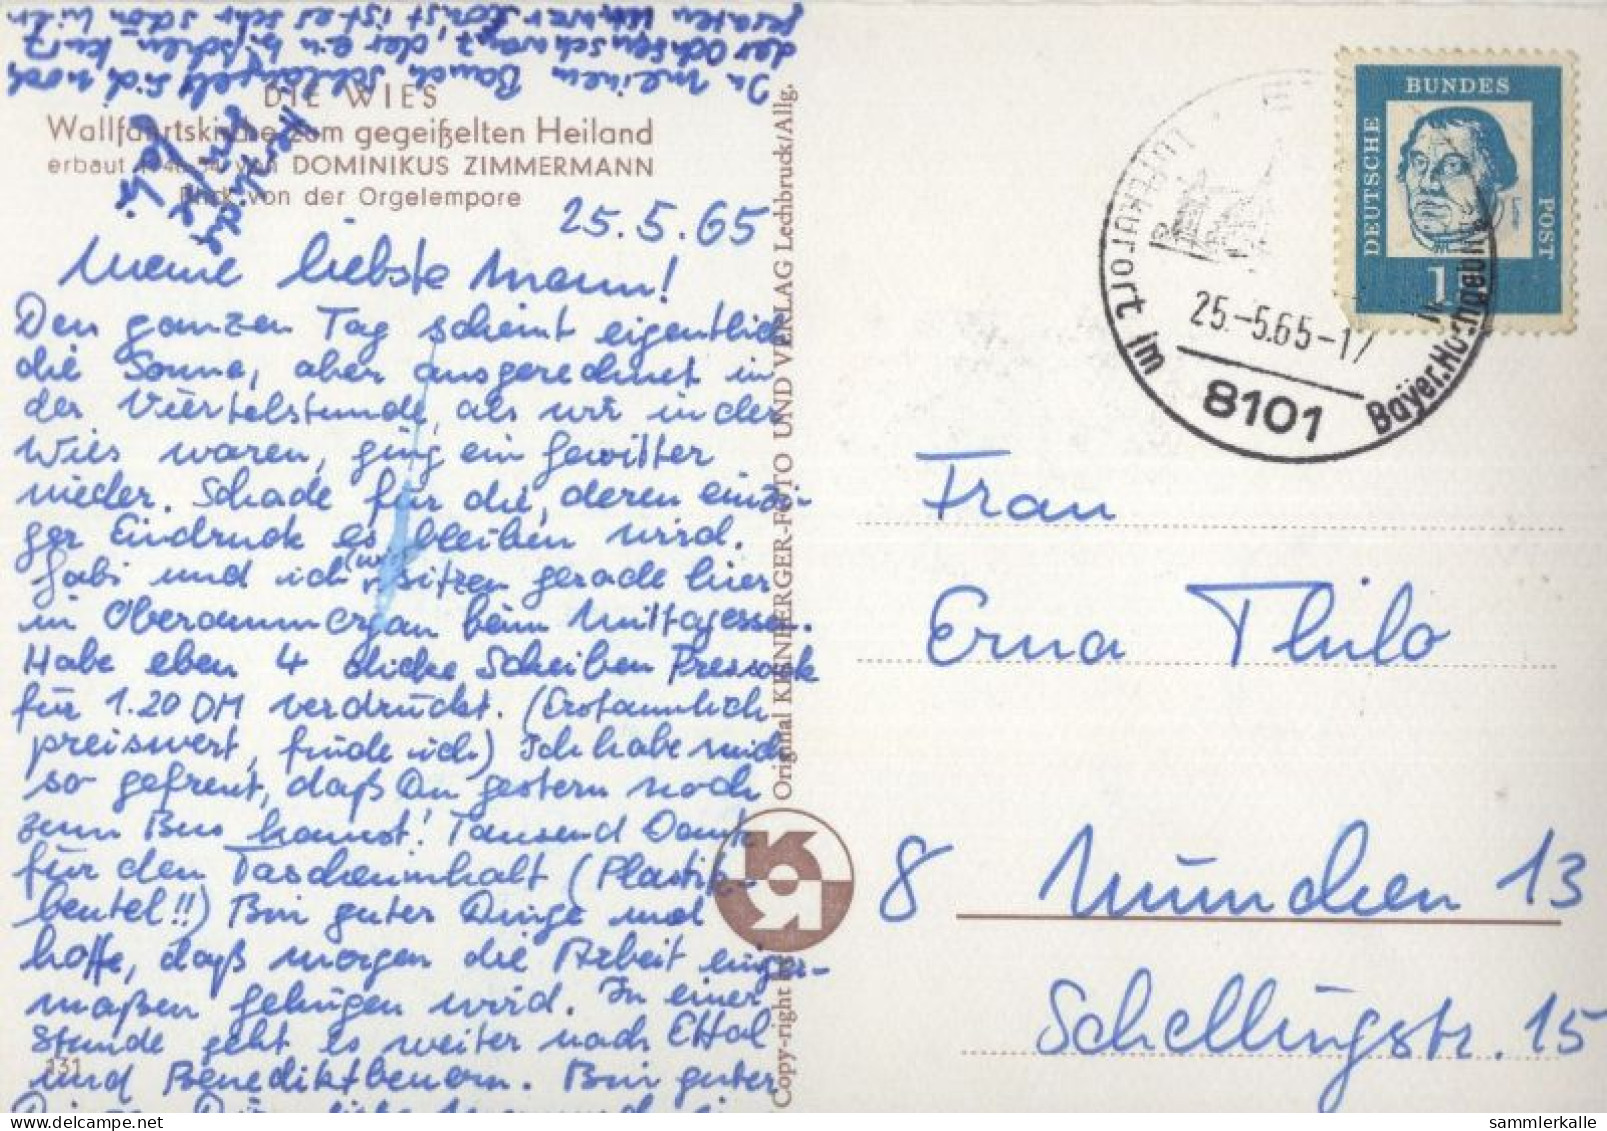 In meinem Bauch schlängelt sich noch
der Ochsenschwanz, der ein bißchen kurz
geraten war. Sonst ist es sehr schön hier
Herzliche
DIE WIES
Wallfahrtskirche zum gegeißelten Heiland
erbaut von DOMINIKUS ZIMMERMANN
Blick von der Orgelempore
25.5.65
Meine liebste Mam!
Den ganzen Tag scheint eigentlich
die Sonne, aber ausgerechnet in
der Viertelstunde, als wir in der
Wies waren, ging ein Gewitter
nieder. Schade für die, deren einzi-
ger Eindruck es bleiben wird.
Gabi und ich (wir) sitzen gerade hier
in Oberammergau beim Mittagessen.
Habe eben 4 dicke Scheiben Pressack
für 1.20 DM verdrückt. (Erstaunlich
preiswert, finde ich.) Ich habe mich
so gefreut, daß Du gestern noch
zum Bus kamst! Tausend Dank
für den Tascheninhalt (Plastik-
beutel!!) Bin guter Dinge und
hoffe, daß morgen die Arbeit einiger-
maßen gelingen wird. In einer
Stunde geht es weiter nach Ettal
und Benediktbeuern. Bin guter
331
Copy-right by Original KIENBERGER-FOTO UND VERLAG Lechbruck/Allg.
DEUTSCHE
BUNDES
POST
1
Luftkurort im
Bayer. Hochgebirge
25.-5.65-17
8101
Frau
Erna Thilo
8 München 13
Schellingstr. 15
sammlerkalle